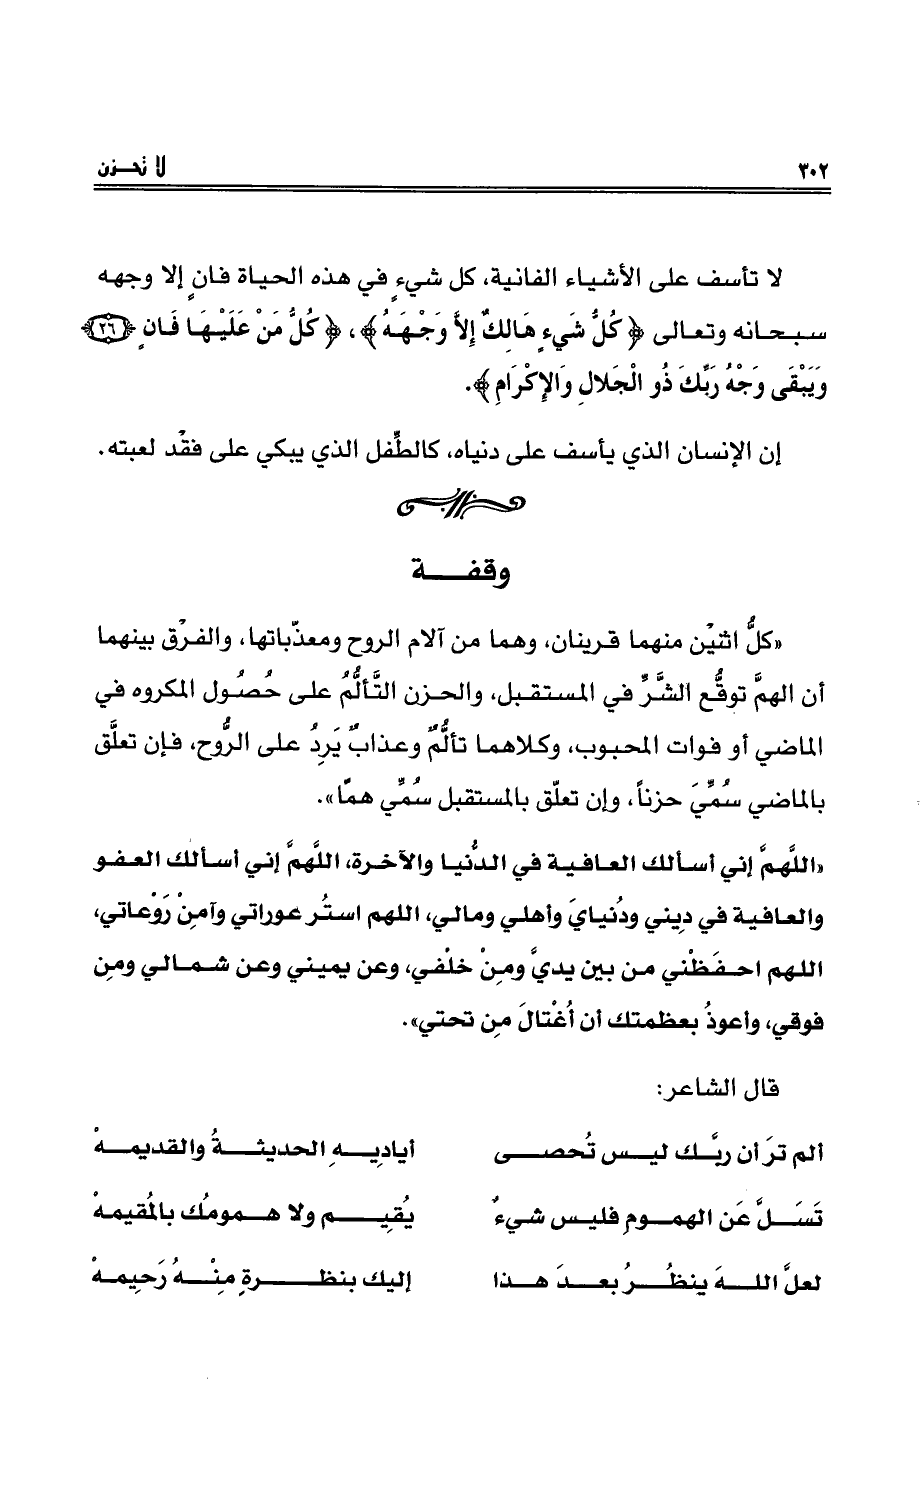 ٣٠٢ لا تحـزن
لا تأسف على الأشياء الفانية، كل شيءٍ في هذه الحياة فانٍ إلا وجهه
سبحانه وتعالى ﴿كُلُّ شَيْءٍ هَالِكٌ إِلاَّ وَجْهَهُ﴾، ﴿كُلُّ مَنْ عَلَيْهَا فَانٍ ﴿٢٦﴾
وَيَبْقَى وَجْهُ رَبِّكَ ذُو الْجَلالِ وَالإِكْرَامِ﴾.
إن الإنسان الذي يأسف على دنياه، كالطِّفل الذي يبكي على فقْد لعبته.
وقفـــة
«كلُّ اثنيْن منهما قرينان، وهما من آلام الروح ومعذّباتها، والفرْق بينهما
أن الهمَّ توقُّع الشَّرِّ في المستقبل، والحزن التَّألُّمُ على حُصُول المكروه في
الماضي أو فوات المحبوب، وكلاهما تألُّمٌ وعذابٌ يَرِدُ على الرُّوح، فإن تعلَّق
بالماضي سُمِّيَ حزناً، وإن تعلّق بالمستقبل سُمِّي همّاً».
«اللَّهمَّ إني أسألك العافية في الدُّنيا والآخرة، اللَّهمَّ إني أسألك العفو
والعافية في دِيني ودُنيايَ وأهلي ومالي، اللهم استُر عوراتي وآمِنْ رَوْعاتي،
اللهم احفَظْني من بين يديَّ ومِنْ خلْفي، وعن يميني وعن شمالي ومِن
فوقي، وأعوذُ بعظمتك أن أُغْتالَ مِن تحتي».
قال الشاعر:
ألم ترَ أن ربَّـك ليـس تُحصـى أياديـه الحديثـةُ والقديمـهْ
تَسَـلَّ عَنِ الهمـومِ فليـس شيءٌ يُقِيـم ولا همـومُك بالمُقيمهْ
لعلَّ اللـهَ ينظـرُ بعـدَ هـذا إليك بنظـرةٍ مِنْـهُ رَحِيمهْ